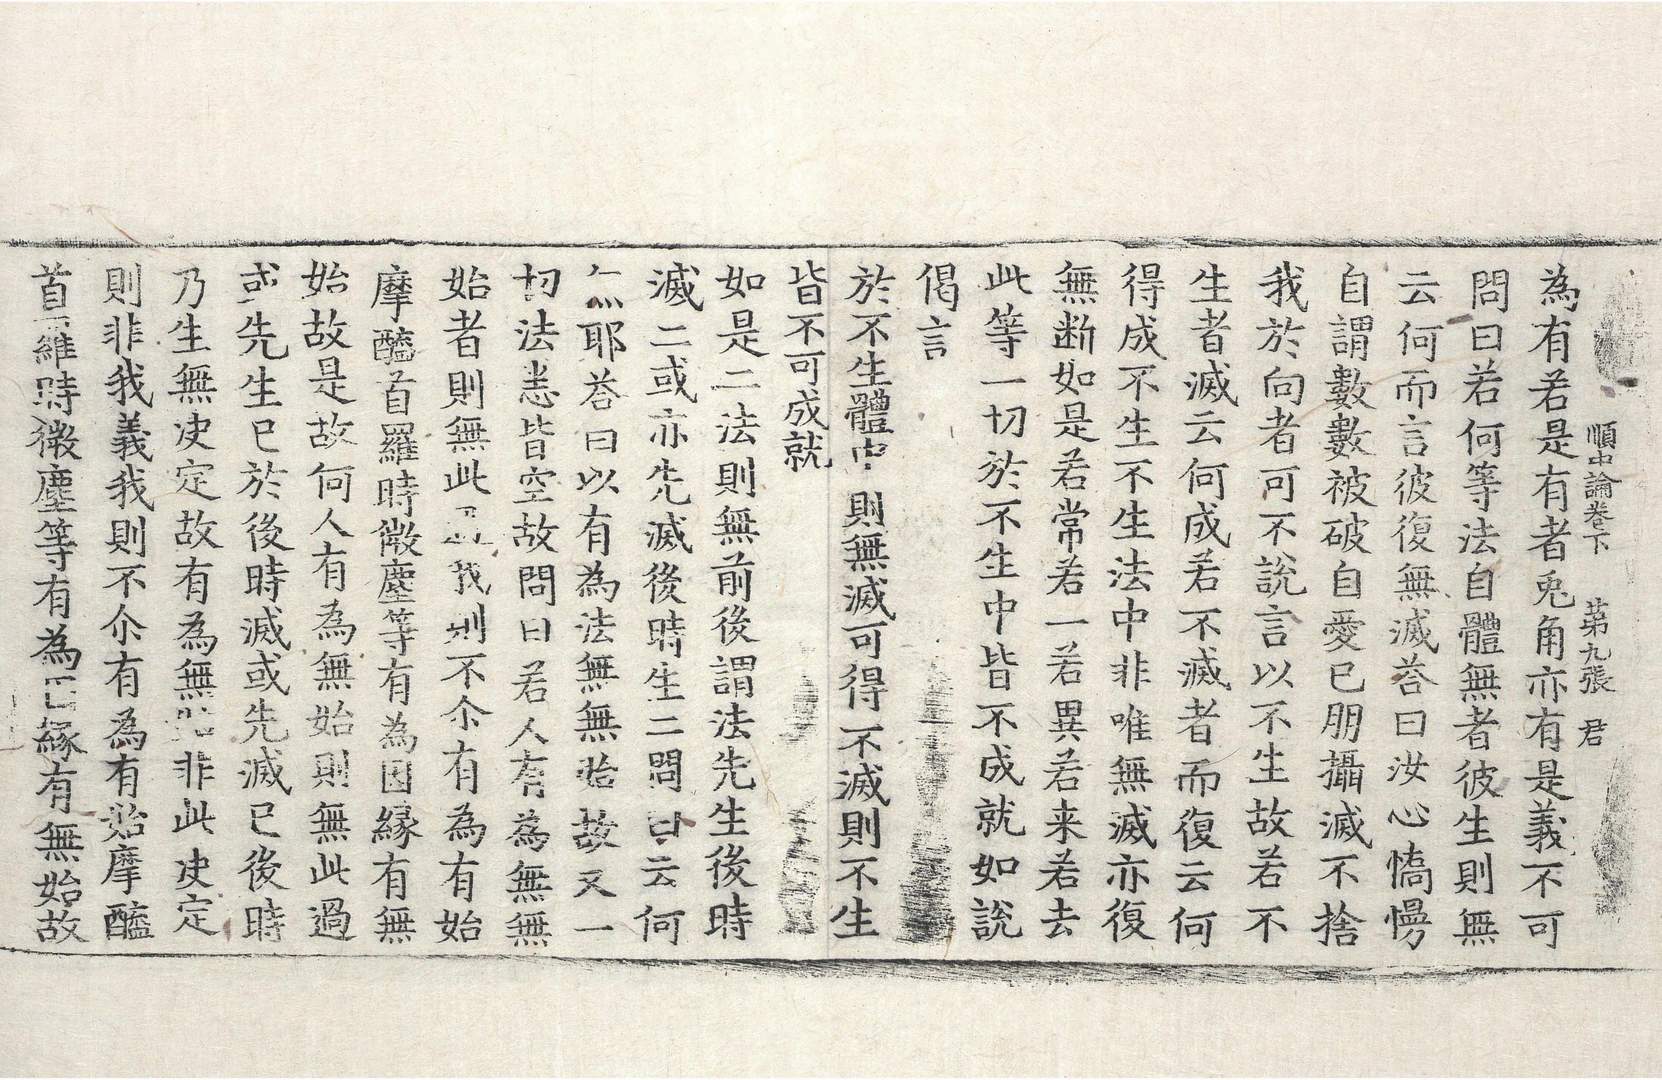 順中論卷下 苐九張 君
為有若是有者兎角亦有是義不可
問曰若何等法自體無者彼生則無
云何而言彼復無滅荅曰汝心憍慢
自謂數數被破自愛已朋攝滅不捨
我於向者可不說言以不生故若不
生者滅云何成若不滅者而復云何
得成不生不生法中非唯無滅亦復
無断如是若常若一若異若来若去
此等一切於不生中皆不成就如說
偈言
於不生體中 則無滅可得 不滅則不生
皆不可成就
如是二法則無前後謂法先生後時
滅二或亦先滅後時生二問曰云何
無耶荅曰以有為法無無始故又一
切法悉皆空故問曰若人有為無無
始者則無此過我則不尒有為有始
摩醯首羅時微塵等有為因縁有無
始故是故何人有為無始則無此過
或先生已於後時滅或先滅已後時
乃生無决定故有為無始非此决定
則非我義我則不尒有為有始摩醯
首羅時微塵等有為因縁有無始故